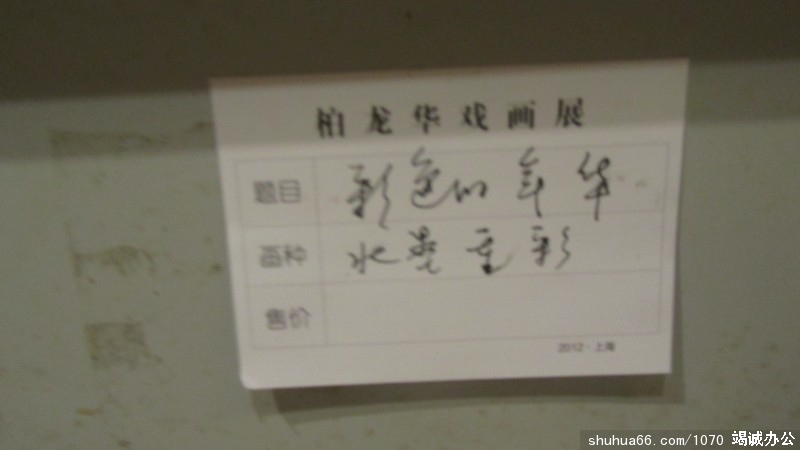 柏龙华戏画展
题目 彩色的年华
画种 水墨重彩
售价
2012·上海
shuhua66.com/1070 竭诚办公